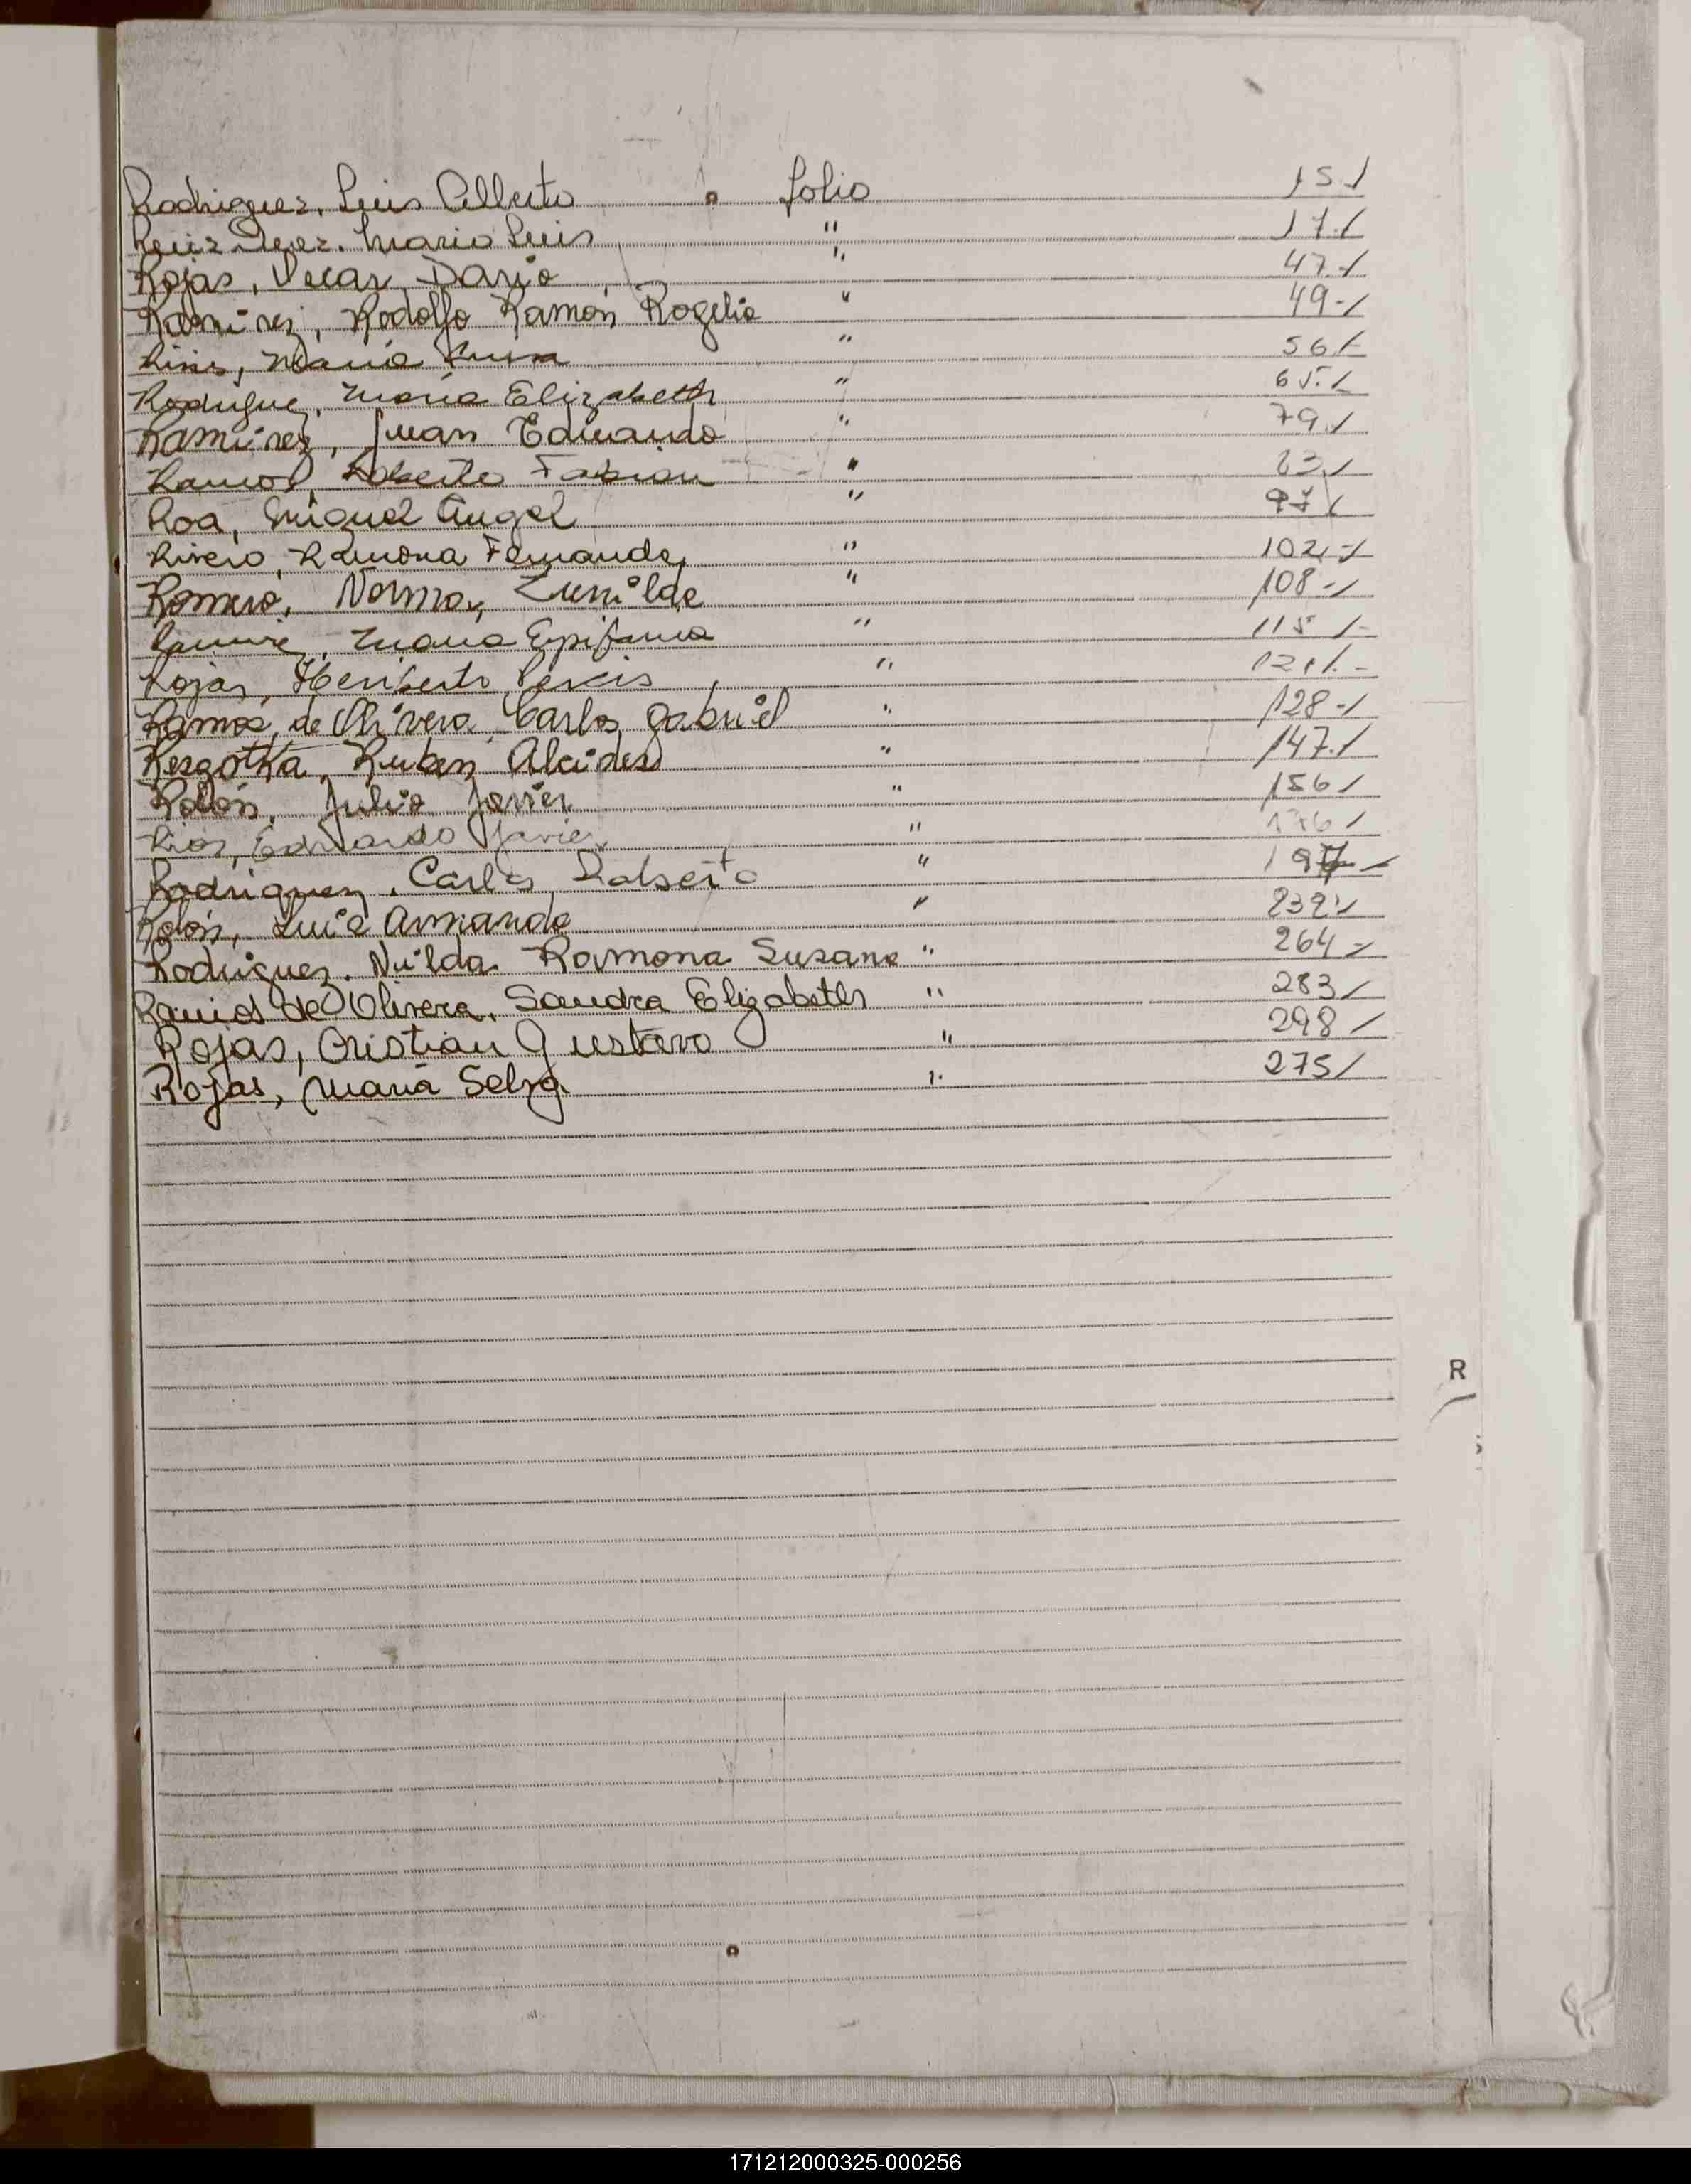 Rodriguez, Luis Alberto folio 15./
Ruiz Mario Luis " 17./
Rojas, Dario " 47./
Ramirez, Rodolfo Ramón Rogelio " 49-/
María " 56/
Rodriguez, María Elizabeth " 65./
Ramirez, Juan Eduardo " 79./
Ramos, Roberto Fabian " /
Roa, Miguel Angel " 97/
Rivero, Ramona Fernanda " 102-/
Romero, Norma Zunilda " 108-/
Epifania " 115/-
Rojas, Heriberto " 121/-
Ramos de Olivera, Carlos Gabriel " 128-/
Rezgotka, Ruben Alcides " 147./
Rolón, Julio Javier " 156/
Rios, Eduardo Javier " /
Rodriguez, Carlos Roberto " 197-
Rolón, Luis Armando " 232/
Rodriguez, Nilda Ramona Susana " 264-/
Ramos de Olivera, Sandra Elizabeth " 283/
Rojas, Cristian Gustavo " 298/
Rojas, María Selva " 275/
R
171212000325-000256